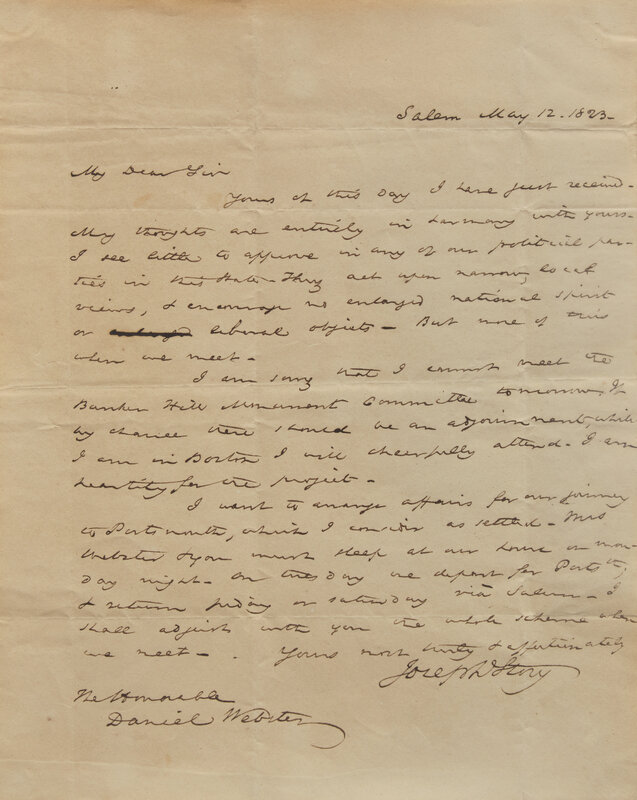 Salem May 12. 1823-
My Dear Sir
Yours of this Day I have just received-
My thoughts are entirely in harmony with yours-
I see little to approve in any of our political par-
ties in this State- They act upon narrow, local
views, & encourage no enlarged national spirit
or liberal objects- But more of this
when we meet-
I am sorry that I cannot meet the
Bunker Hill Monument Committee tomorrow. If
by chance there should be an adjournment, while
I am in Boston I will cheerfully attend- I am
heartily for the project-
I want to arrange affairs for our journey
to Portsmouth, which I consider as settled- Mrs
Webster & you must sleep at our house on mon-
day night- On tuesday we depart for Ports'th;
& return friday or saturday via Salem- I
shall adjust with you the whole scheme when
we meet- Yours most truly & affectionately
Joseph Story
The Honorable
Daniel Webster